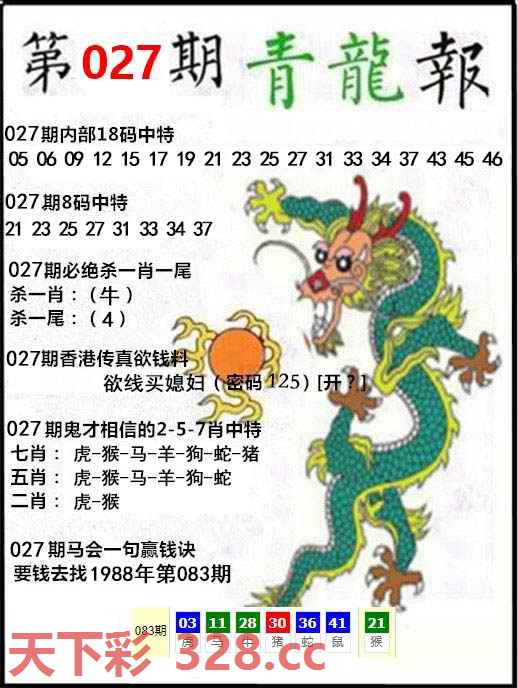 第027期青龍報
027期内部18码中特
05 06 09 12 15 17 19 21 23 25 27 31 33 34 37 43 45 46
027期8码中特
21 23 25 27 31 33 34 37
027期必绝杀一肖一尾
杀一肖：（牛）
杀一尾：（4）
027期香港传真欲钱料
欲线买媳妇（密码125）[开？]
027期鬼才相信的2-5-7肖中特
七肖： 虎-猴-马-羊-狗-蛇-猪
五肖： 虎-猴-马-羊-狗-蛇
二肖： 虎-猴
027期马会一句赢钱诀
要钱去找1988年第083期
083期 03 11 28 30 36 41 21
虎 马 牛 猪 蛇 鼠 猴
天下彩 328.cc